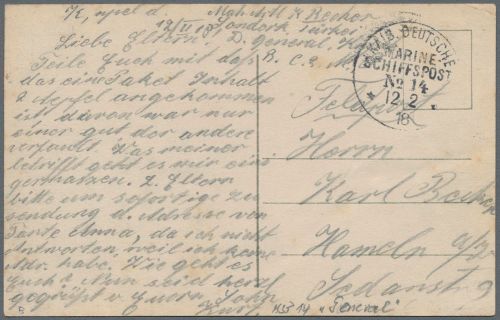 Liebe Eltern, D. general,
Teile Euch mit daß
das eine Paket Inhalt
2 Aepfel angekommen
ist davon war nur
einer gut der andere
verfault. Was meiner
betrifft geht es mir eini
germaszen. L. Eltern
bitte um sofortige zu
sendung d. Adresse von
Tante Anna, da ich nicht
Antworten, weil ich keine
Adr. habe. Wie geht es
Euch? Nun seid herzl
gegrüßt v. Euern Sohn
Kurt
KAIS. DEUTSCHE
MARINE-
SCHIFFSPOST
No 14
* 12 2
18
Feldpost
Herrn
Karl Becher
Hameln a/W
Sedanstr 9
MSP 14 "General"